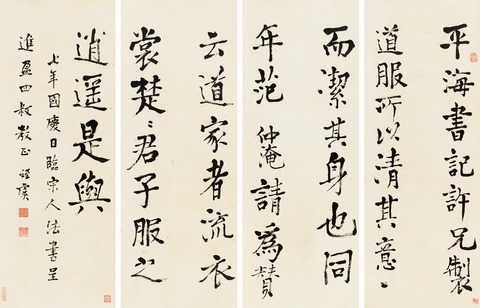 平海書記許兄製
道服所以清其意、
而潔其身也同
年范仲淹請為贊
云道家者流衣
裳楚〻君子服之
逍遥是與
七年國慶日臨宋人法書呈
進盈四叔教正